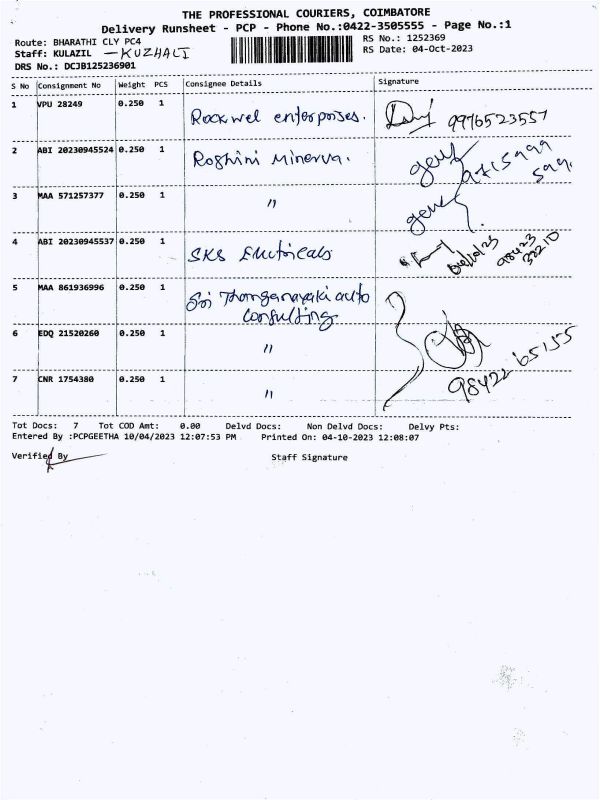 THE PROFESSIONAL COURIERS, COIMBATORE
Delivery Runsheet - PCP - Phone No.:0422-3505555 - Page No.:1
Route: BHARATHI CLY PC4 RS No.: 1252369
Staff: KULAZIL - KUZHALI RS Date: 04-Oct-2023
DRS No.: DCJB125236901
S No Consignment No Weight PCS Consignee Details Signature
1 VPU 28249 0.250 1 Rockwel enterprises. 9976523557
2 ABI 20230945524 0.250 1 Roshini Minerva.
3 MAA 571257377 0.250 1 "
4 ABI 20230945537 0.250 1 SKS Electricals 98423 32210
5 MAA 861936996 0.250 1 Sri Thanganayaki auto
Consulting
6 EDQ 21520260 0.250 1 "
7 CNR 1754380 0.250 1 " 98422 65155
Tot Docs: 7 Tot COD Amt: 0.00 Delvd Docs: Non Delvd Docs: Delvy Pts:
Entered By :PCPGEETHA 10/04/2023 12:07:53 PM Printed On: 04-10-2023 12:08:07
Verified By Staff Signature